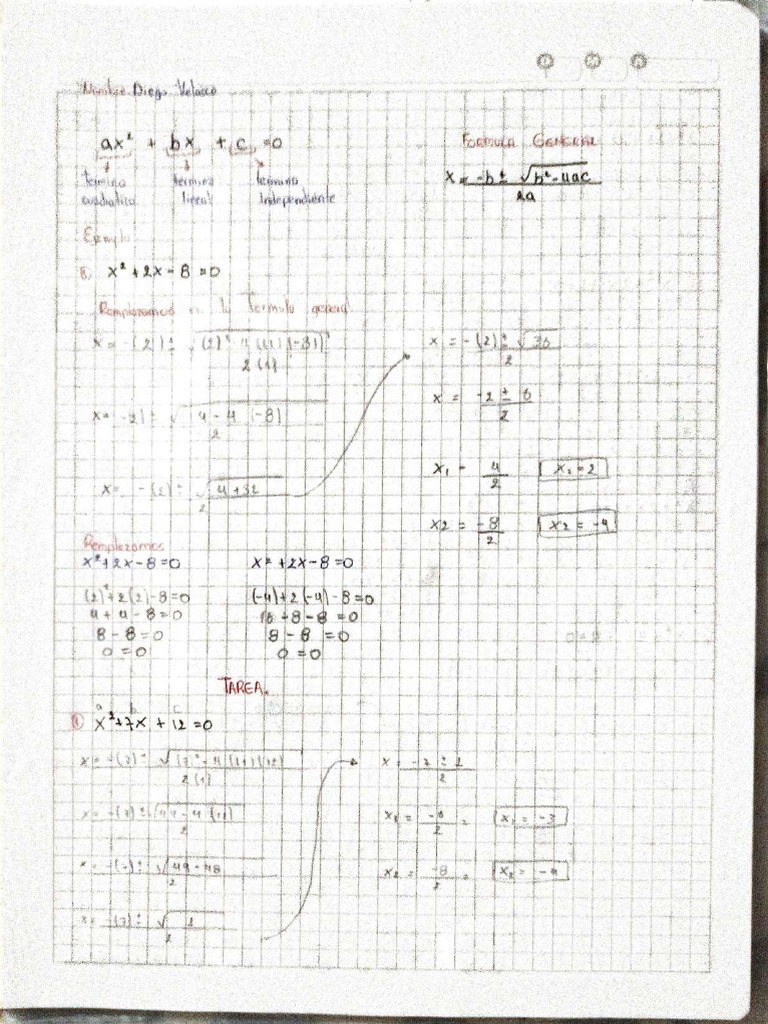 Nombre: Diego Velasco
ax² + bx + c = 0
termino cuadratico termino lineal termino independiente
FORMULA GENERAL
x = -b ± √b² - 4ac
2a
Ejemplo
x² + 2x - 8 = 0
Remplazamos en la formula general
x = -(2) ± √(2)² 4(1)(-8)
2(1)
x = -2 ± √4 - 4 (-8)
2
x = -(2) ± √4 + 32
2
x = -(2) ± √36
2
x = -2 ± 6
2
x₁ = 4
2
x₁ = 2
x2 = -8
2
x2 = -4
Remplazamos
x² + 2x - 8 = 0
(2)² + 2(2) - 8 = 0
4 + 4 - 8 = 0
8 - 8 = 0
0 = 0
x² + 2x - 8 = 0
(-4) + 2(-4) - 8 = 0
16 - 8 - 8 = 0
8 - 8 = 0
0 = 0
TAREA.
a b c
① x² + 7x + 12 = 0
x = -(7) ± √(7)² - 4(1)(12)
2(1)
x = -(7) ± √49 - 4 (12)
2
x = -(7) ± √49 - 48
2
x = -(7) ± √1
2
x = -7 ± 1
2
x₁ = -6 =
2
x₁ = -3
x2 = -8 =
2
x2 = -4